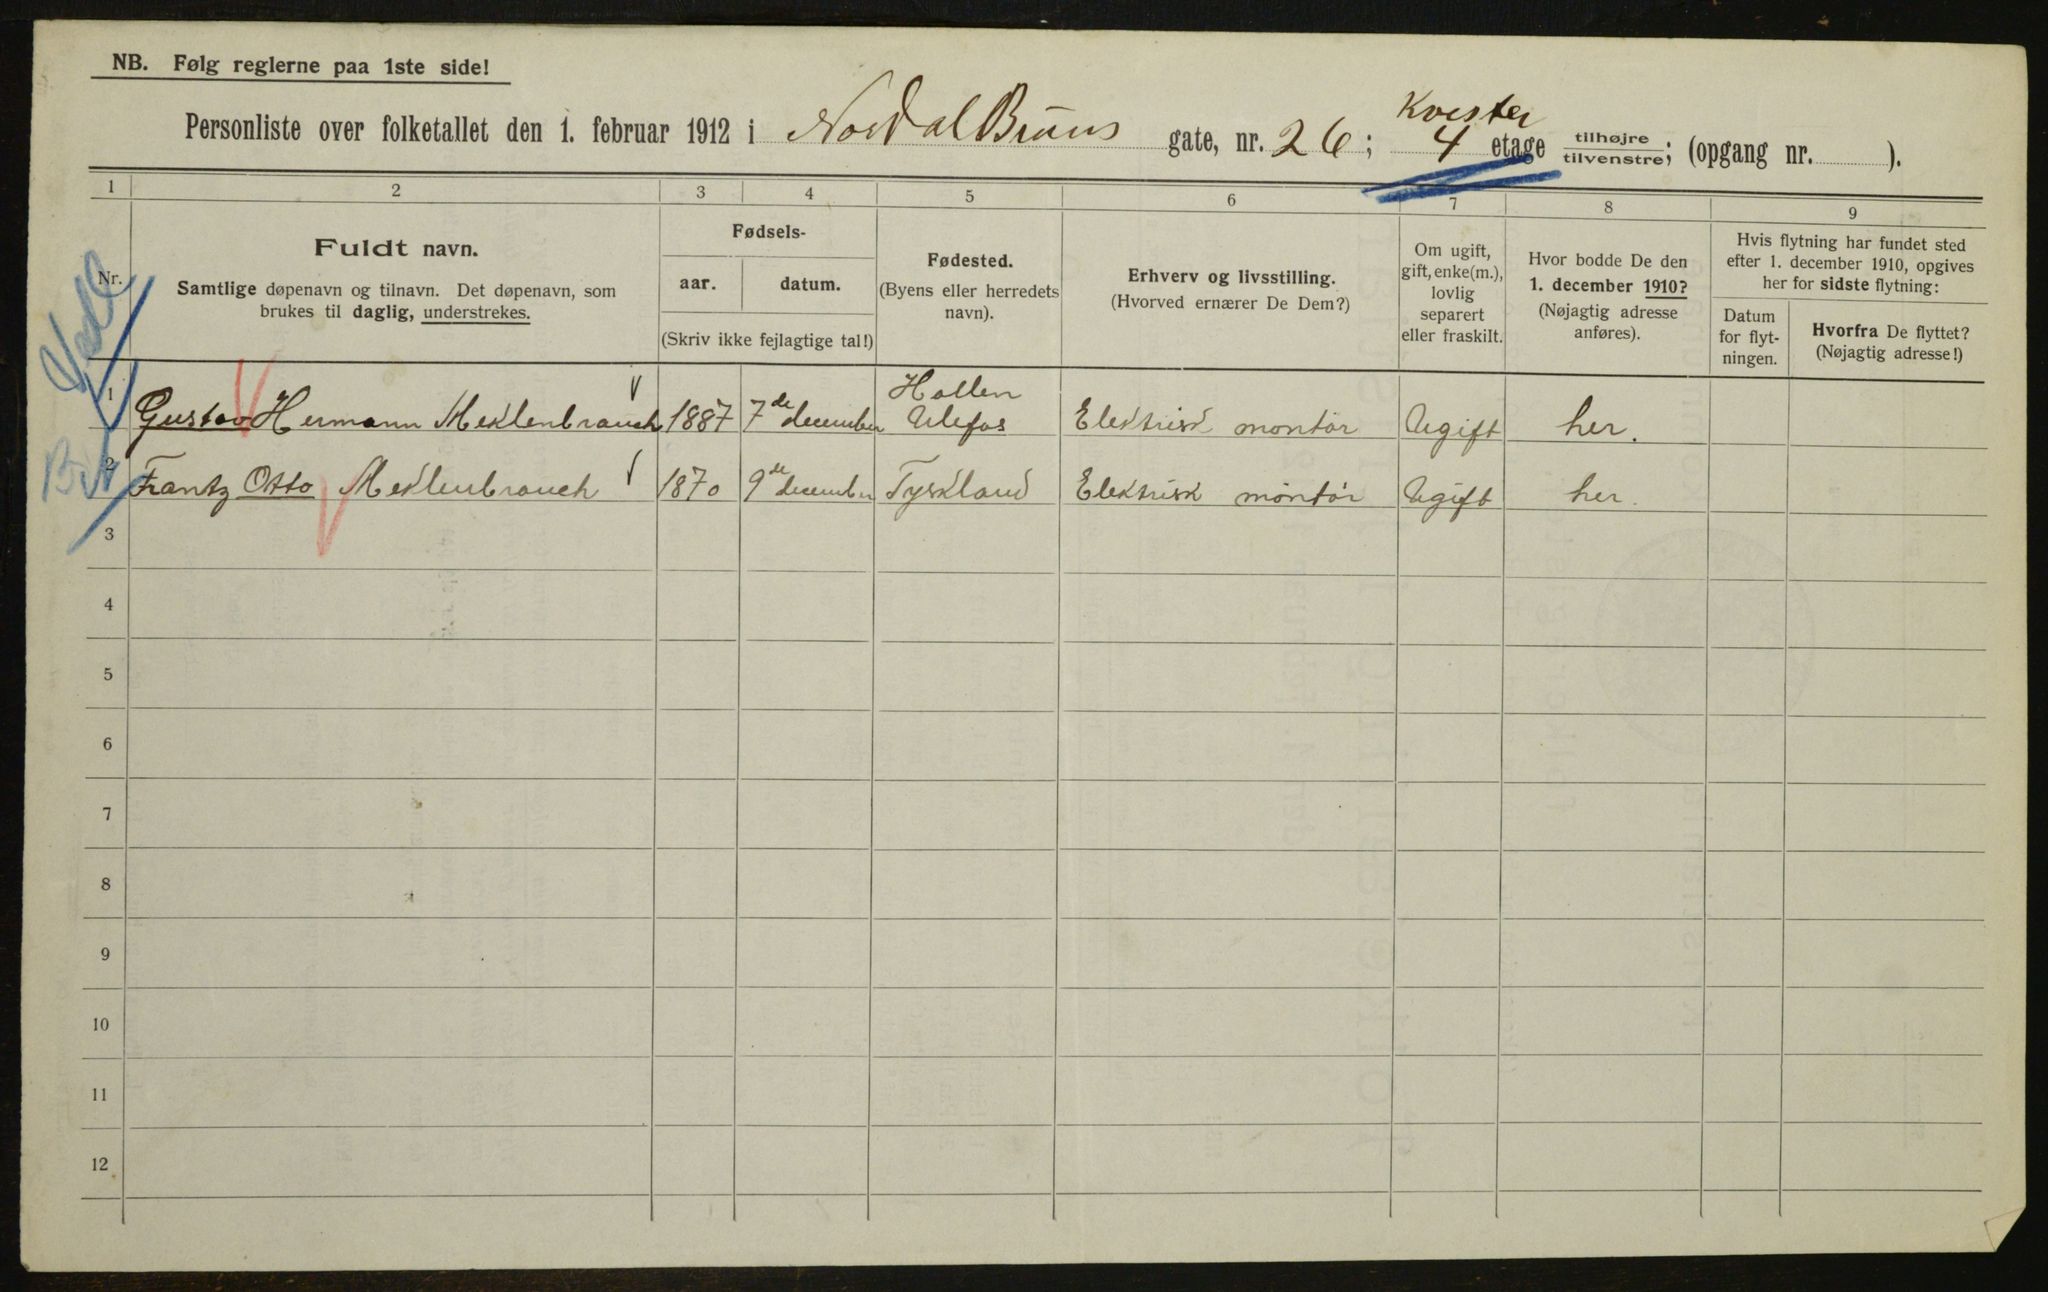 NB. Følg reglerne paa 1ste side!
Kvister
Personliste over folketallet den 1. februar 1912 i Nordal Bruns gate, nr. 26; 4 etage tilhøjre tilvenstre; (opgang nr. ).
1 2 3 4 5 6 7 8 9
Nr.
Fuldt navn.
Samtlige døpenavn og tilnavn. Det døpenavn, som
brukes til daglig, understrekes.
Fødsels-
aar. datum.
(Skriv ikke fejlagtige tal!)
Fødested.
(Byens eller herredets
navn).
Erhverv og livsstilling.
(Hvorved ernærer De Dem?)
Om ugift,
gift, enke(m.),
lovlig
separert
eller fraskilt.
Hvor bodde De den
1. december 1910?
(Nøjagtig adresse
anføres).
Hvis flytning har fundet sted
efter 1. december 1910, opgives
her for sidste flytning:
Datum
for flyt-
ningen.
Hvorfra De flyttet?
(Nøjagtig adresse!)
Hollen
1 Gustav Hermann Meklenbrauck 1887 7de december Ulefos Elektrisk montør Ugift her.
2 Frantz Otto Meklenbrauck 1870 9de december Tyskland Elektrisk montør Ugift her.
3
4
5
6
7
8
9
10
11
12